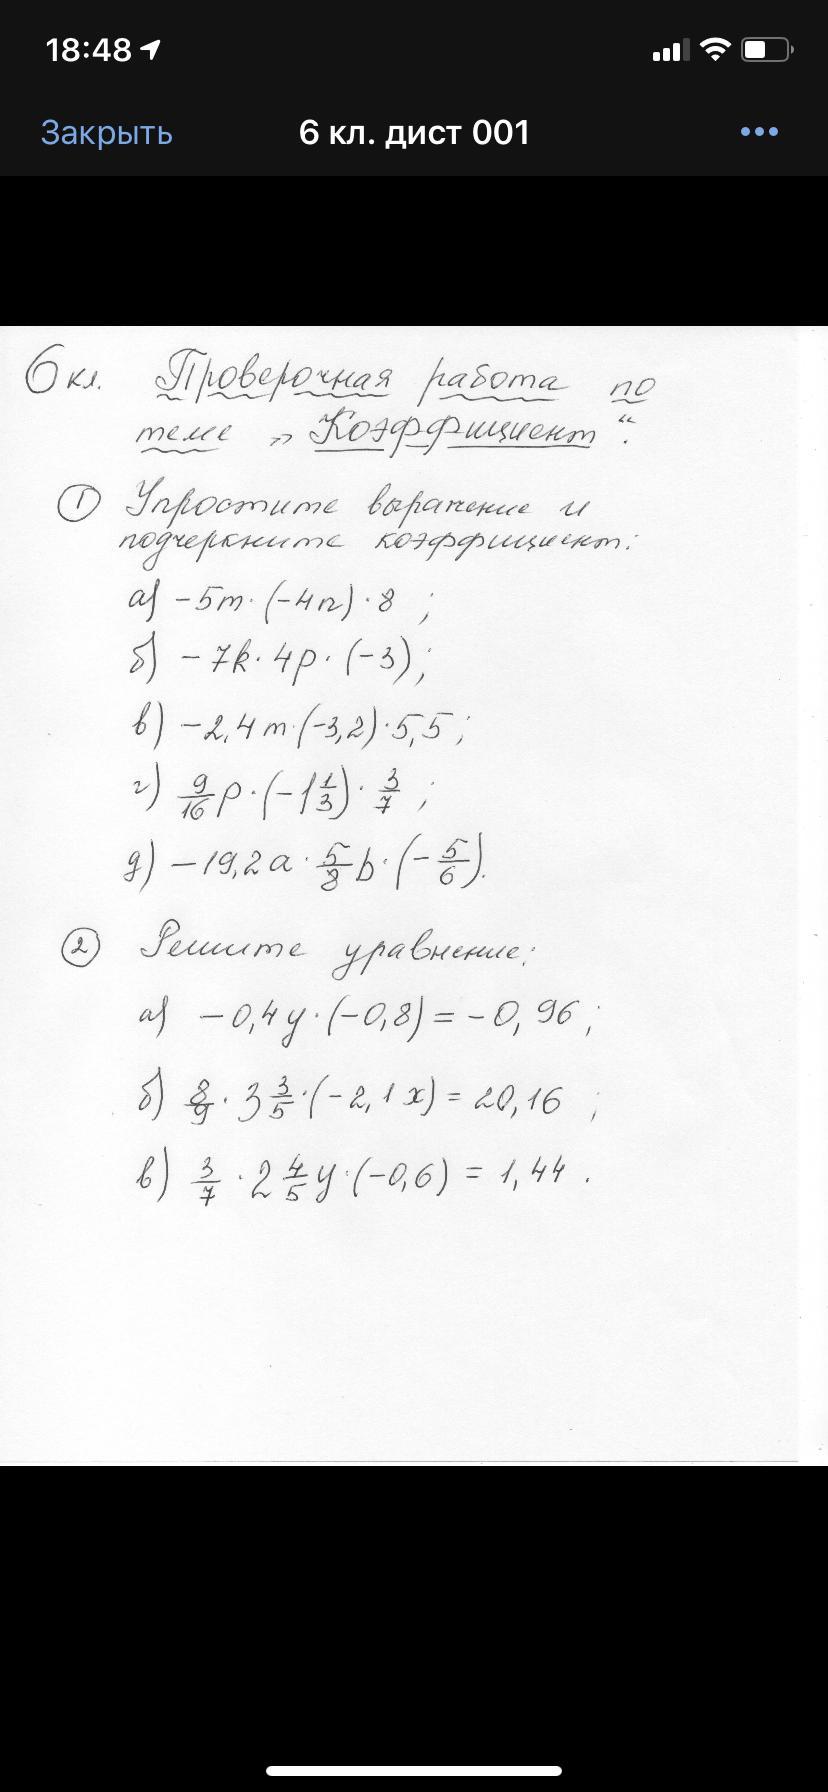 18:48
Закрыть 6 кл. дист 001
6 кл. Проверочная работа по
теме „Коэффициент“.
① Упростите выражение и
подчеркните коэффициент:
а) -5m·(-4n)·8 ;
б) -7k·4p·(-3);
в) -2,4m·(-3,2)·5,5;
г) 9/16 p·(-1 1/3)· 3/7 ;
д) -19,2a· 5/8 b·(- 5/6).
② Решите уравнение:
а) -0,4y·(-0,8) = -0,96;
б) 8/9 · 3 3/5 ·(-2,1x) = 20,16 ;
в) 3/7 · 2 4/5 y·(-0,6) = 1,44 .